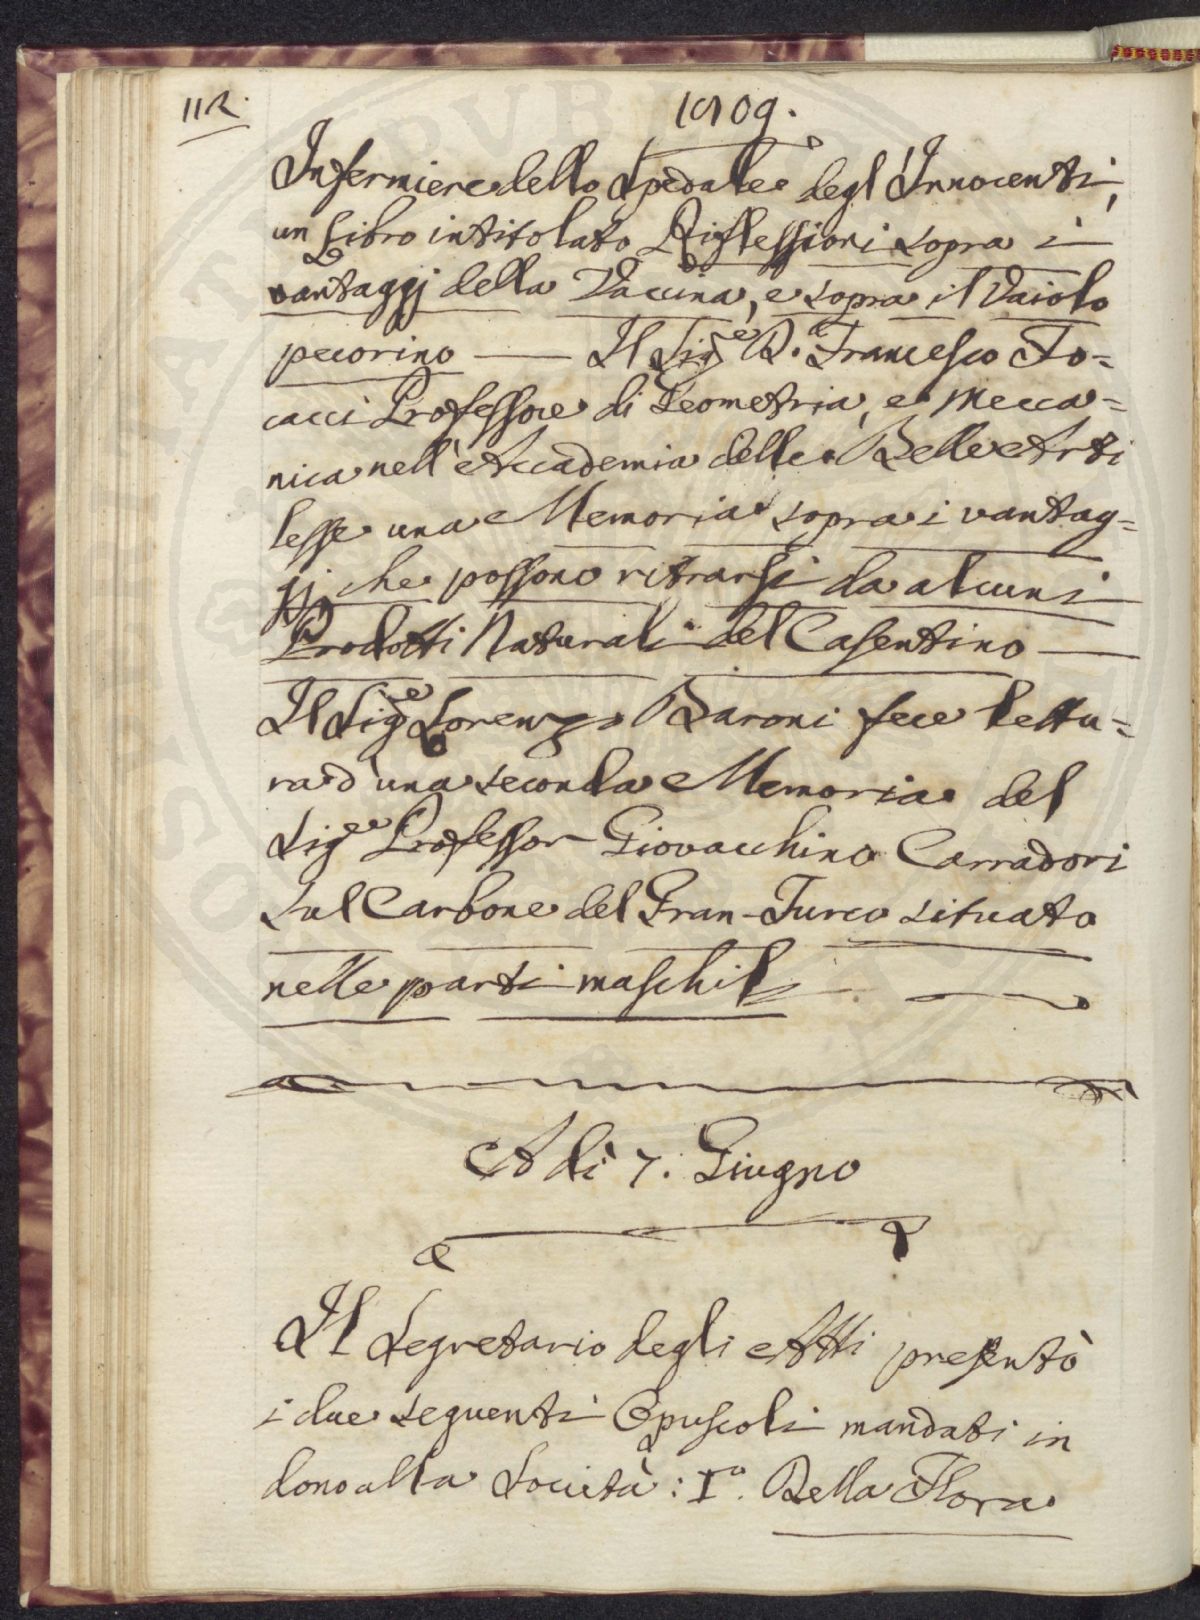 112.
1809.
Infermiere dello Spedale degl'Innocenti,
un Libro intitolato Riflessioni sopra i
vantaggj della Vaccina, e sopra il Vaiolo
pecorino — Il Sig.e D.e Francesco Fo=
cacci Professore di Geometria, e Mecca=
nica nell'Accademia delle Belle Arti
lesse una Memoria sopra i vantag=
gj, che possono ritrarsi da alcuni
Prodotti Naturali del Casentino —
Il Sig.e Lorenzo Baroni fece lettu=
ra d'una seconda Memoria del
Sig.e Professor Giovacchino Carradori
Sul Carbone del Gran-Turco situato
nelle parti maschili
A dì 7. Giugno
Il Segretario degli Atti presentò
i due seguenti Opuscoli mandati in
dono alla Società: I.o Della Flora